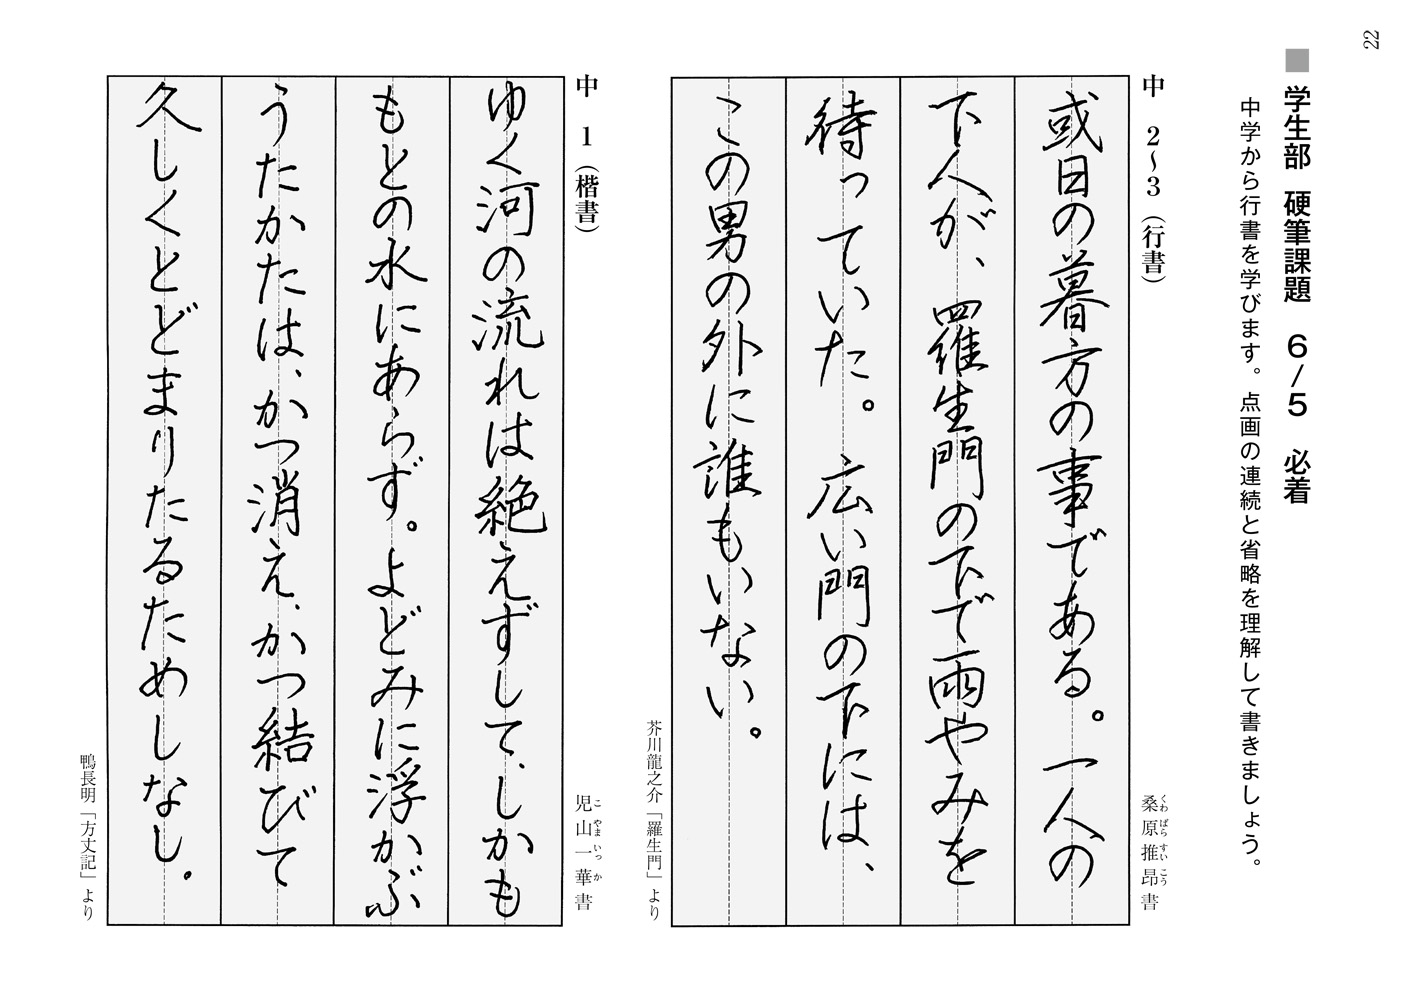 22
■ 学生部 硬筆課題 6/5 必着
中学から行書を学びます。点画の連続と省略を理解して書きましょう。
中 2〜3（行書）
桑原推昂書
くわばらすいこう
或日の暮方の事である。一人の
下人が、羅生門の下で雨やみを
待っていた。広い門の下には、
この男の外に誰もいない。
芥川龍之介「羅生門」より
中 1（楷書）
児山一華書
こやまいっか
ゆく河の流れは絶えずして、しかも
もとの水にあらず。よどみに浮かぶ
うたかたは、かつ消え、かつ結びて
久しくとどまりたるためしなし。
鴨長明「方丈記」より